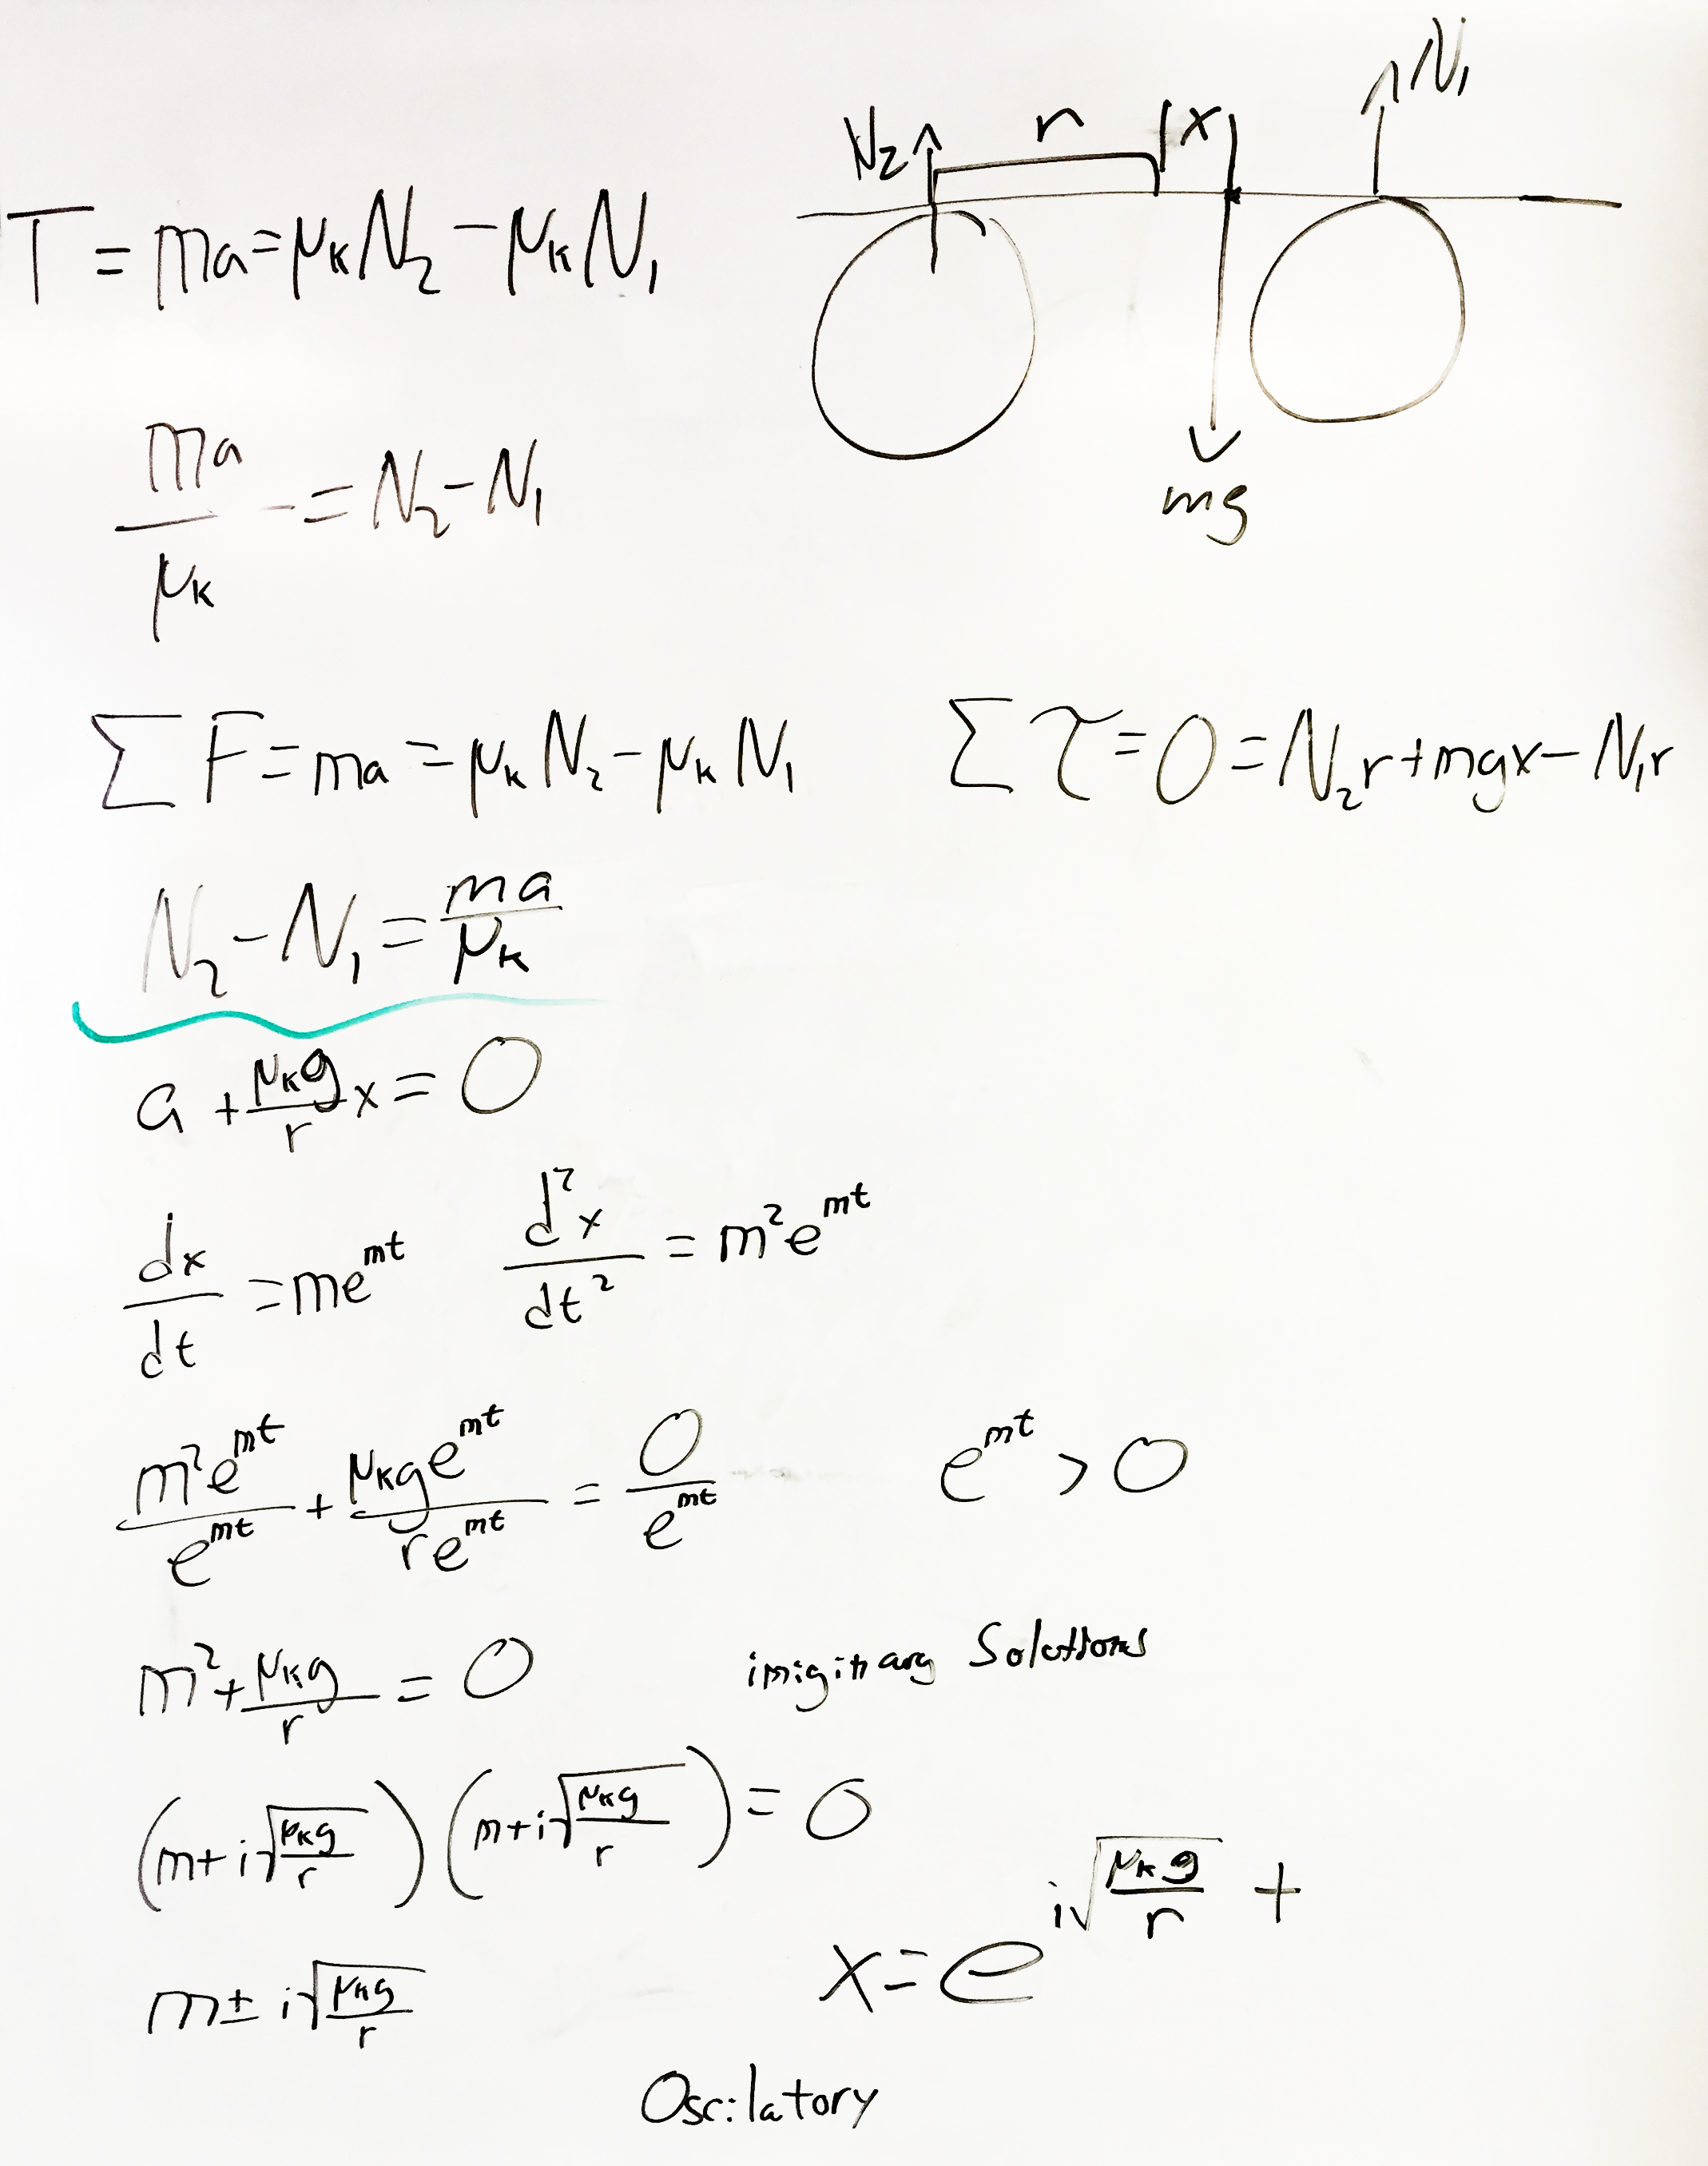 N₂ r |x| N₁
T = ma = μₖN₂ − μₖN₁
mg
ma/μₖ = N₂ − N₁
ΣF = ma = μₖN₂ − μₖN₁
Στ = 0 = N₂r + mgx − N₁r
N₂ − N₁ = ma/μₖ
a + μₖg/r x = 0
dx/dt = me^mt
d²x/dt² = m²e^mt
m²e^mt/e^mt + μₖge^mt/re^mt = 0/e^mt
e^mt > 0
m² + μₖg/r = 0
imiginary Solutions
(m + i√(μₖg/r))(m + i√(μₖg/r)) = 0
m ± i√(μₖg/r)
x = e^i√(μₖg/r) +
Oscilatory